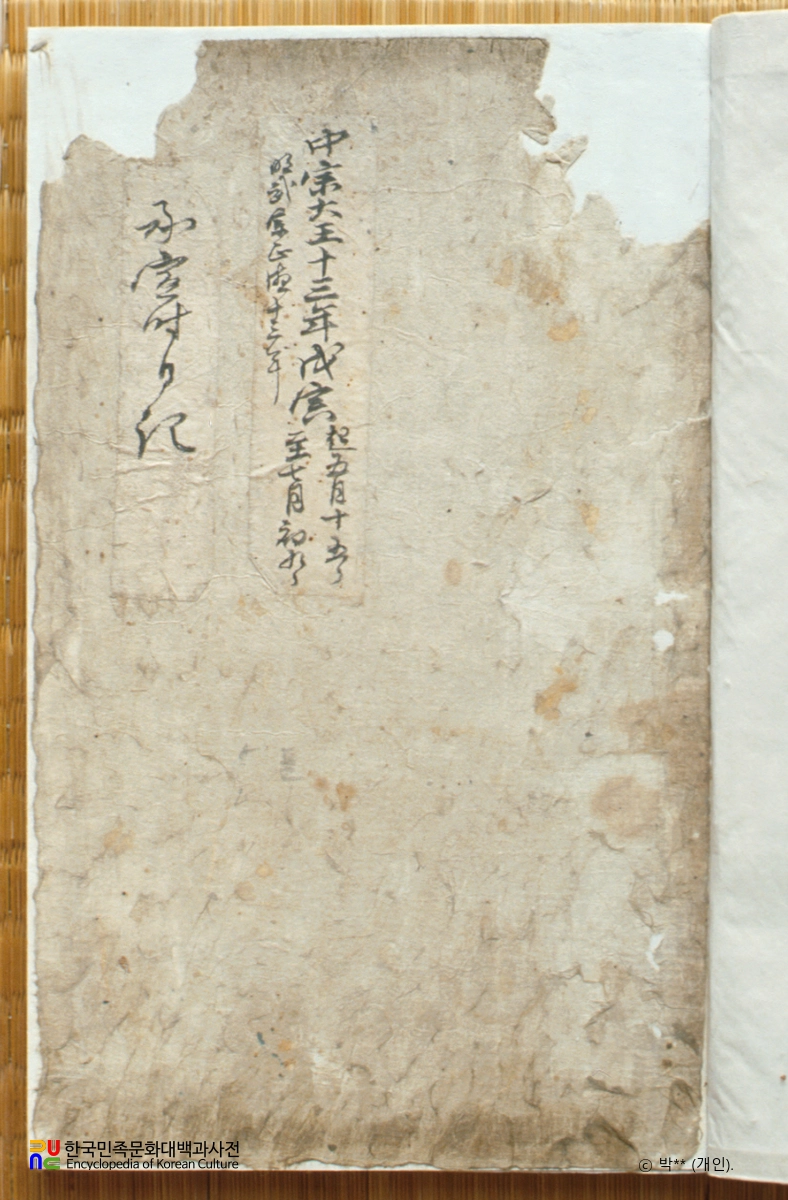 中宗大王十三年戊寅
起五月十五日
至七月初九日
明武宗正德十三年
承宣時日記
한국민족문화대백과사전
Encyclopedia of Korean Culture
ⓒ 박** (개인).